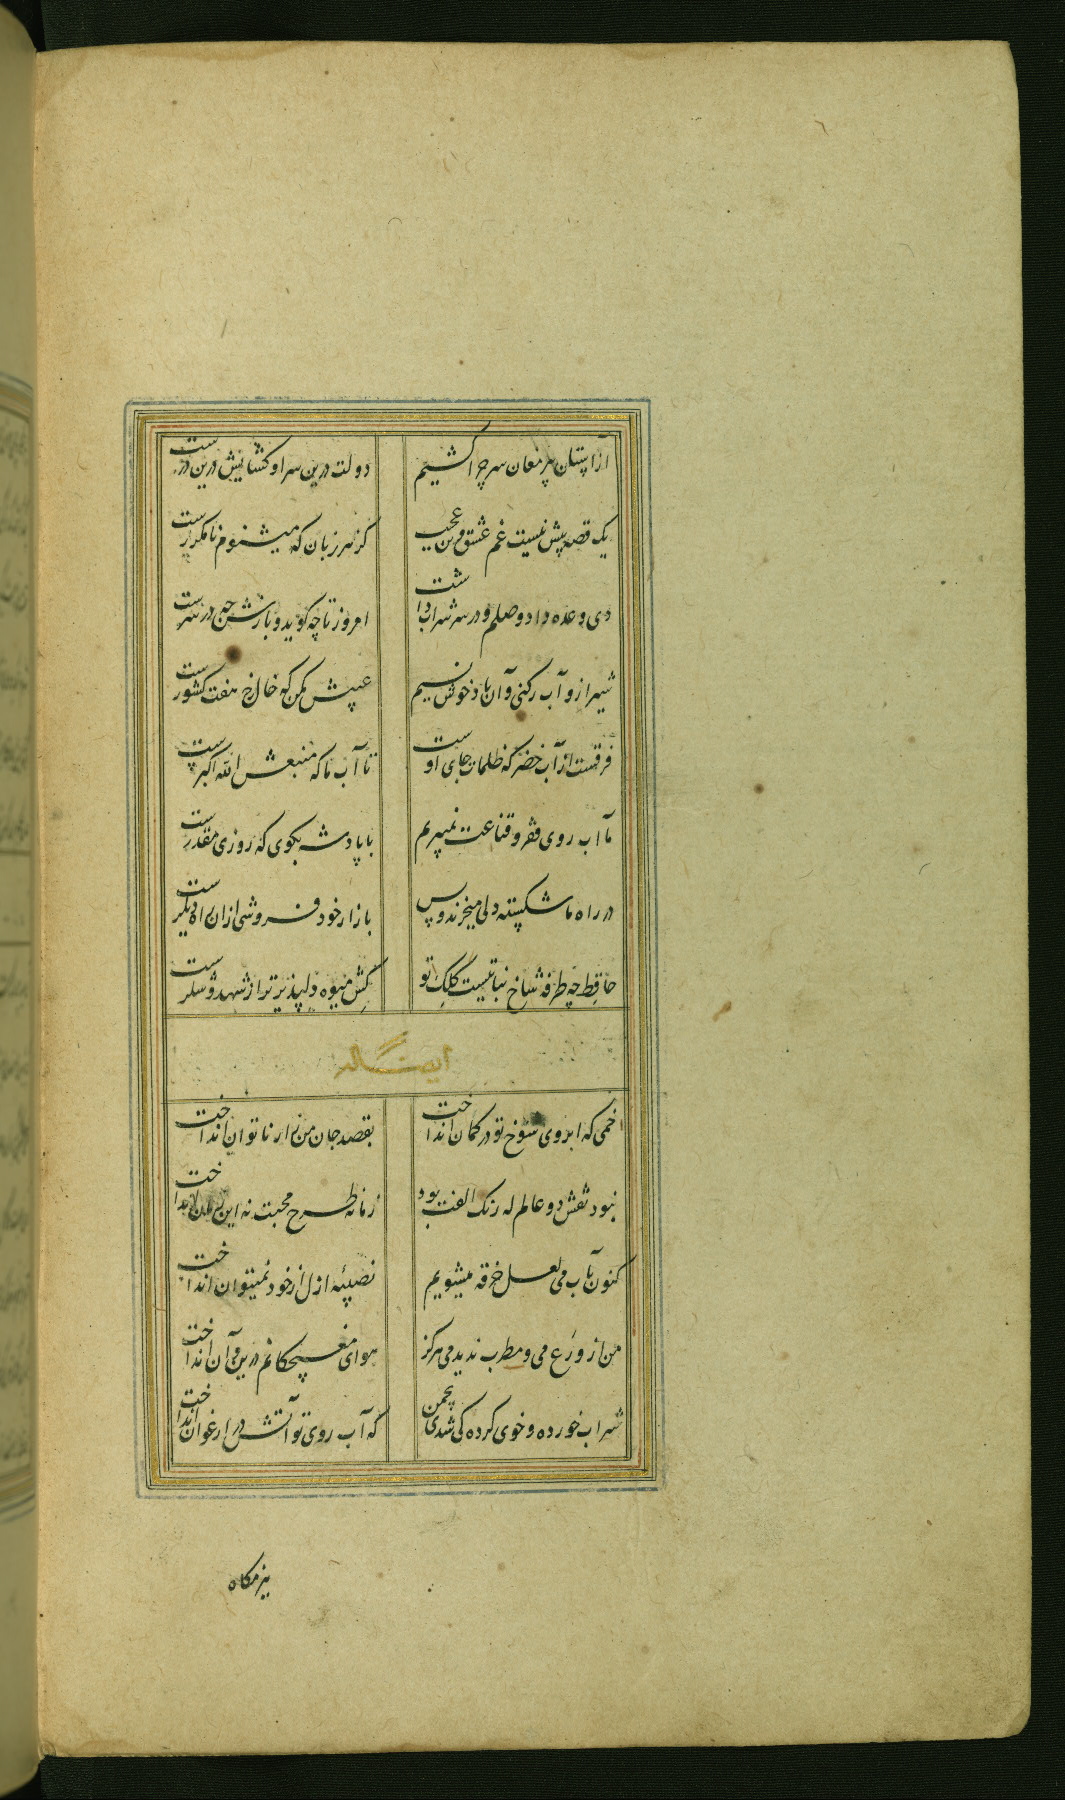 از آستان پیر مغان سر چرا کشیم
دولت درین سرا و کشایش درین درست
یک قصه بیش نیست غم عشق وین عجب
کز هر زبان که میشنوم نامکررست
دی وعده داد وصلم و در سر شراب داشت
امروز تا چه کوید و بازش چه در سرست
شیراز و آب رکنی و آن باد خوش نسیم
عیبش مکن که خال رخ هفت کشورست
فرقست از آب خضر که ظلمات جای اوست
تا آب ما که منبعش الله اکبرست
ما آب روی فقر و قناعت نمیبریم
با پادشه بکوی که روزی مقدرست
در راه ما شکسته دلی میخرند و بس
بازار خود فروشی ازان راه دیگرست
حافظ چه طرفه شاخ نباتیست کلک تو
کش میوه دلپذیرتر از شهد و شکرست
ایضا له
خمی که ابروی شوخ تو در کمان انداخت
بقصد جان من زار ناتوان انداخت
نبود نقش دو عالم که رنک الفت بود
زمانه طرح محبت نه این زمان انداخت
کنون بآب می لعل خرقه میشویم
نصیبه ازل از خود نمیتوان انداخت
من از ورع می و مطرب ندیدمی هرکز
هوای مغبچکانم درین و آن انداخت
شراب خورده و خوی کرده کی شدی بچمن
که آب روی تو آتش در ارغوان انداخت
بزمکاه